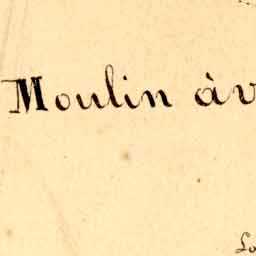 Moulin àv
Lo